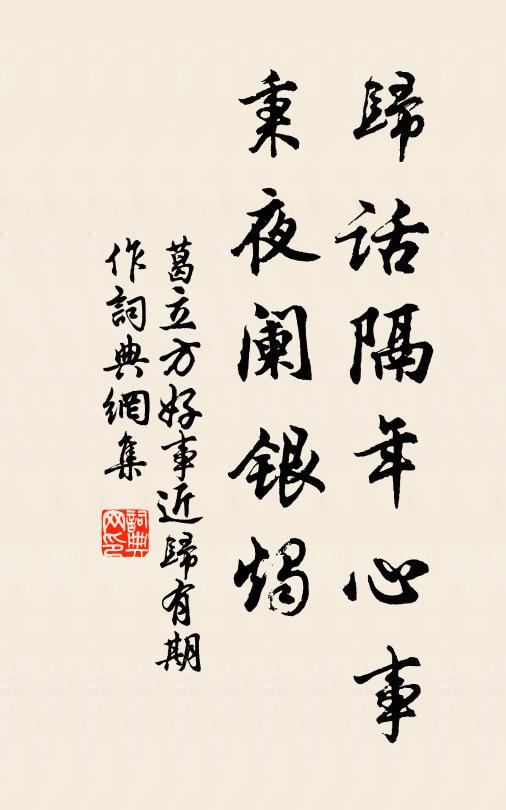 歸话隔年心事
秉夜阑銀燭
葛立方好事近歸有期
作詞典網集
詞典
网印